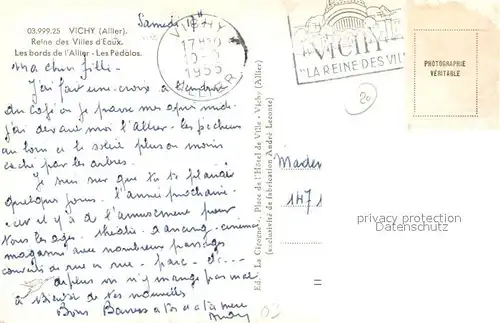 03.999.25 VICHY (Allier).
Reine des Villes d'Eaux.
Les bords de l'Allier - Les Pédalos.
Samedi 17H
VICHY
17H30
1955
ALLIER
VICHY
"LA REINE DES VIL
PHOTOGRAPHIE
VÉRITABLE
20
Ma chère fille.
J'ai fait une croix à l'endroit
du café où je passe mes après midi
j'ai devant moi l'Allier. les pêcheurs
au loin et le soleil plus ou moins
caché par les arbres.
Je suis sûr que tu te plairais
quelques jours. l'année prochaine.
car il y a de l'amusement pour
tous les ages. théâtre. dancing. cinéma
magasins avec nombreux passages
couverts de rue en rue. parc. etc...
depuis on n'y mange pas mal
à bientôt de tes nouvelles
Bons Baisers à toi et à ta mère
Edit. La Cigogne -, Place de l'Hôtel de Ville - Vichy (Allier)
(exclusivité de fabrication André Leconte)
Madem
147 1
propriety protection
Datenschutz